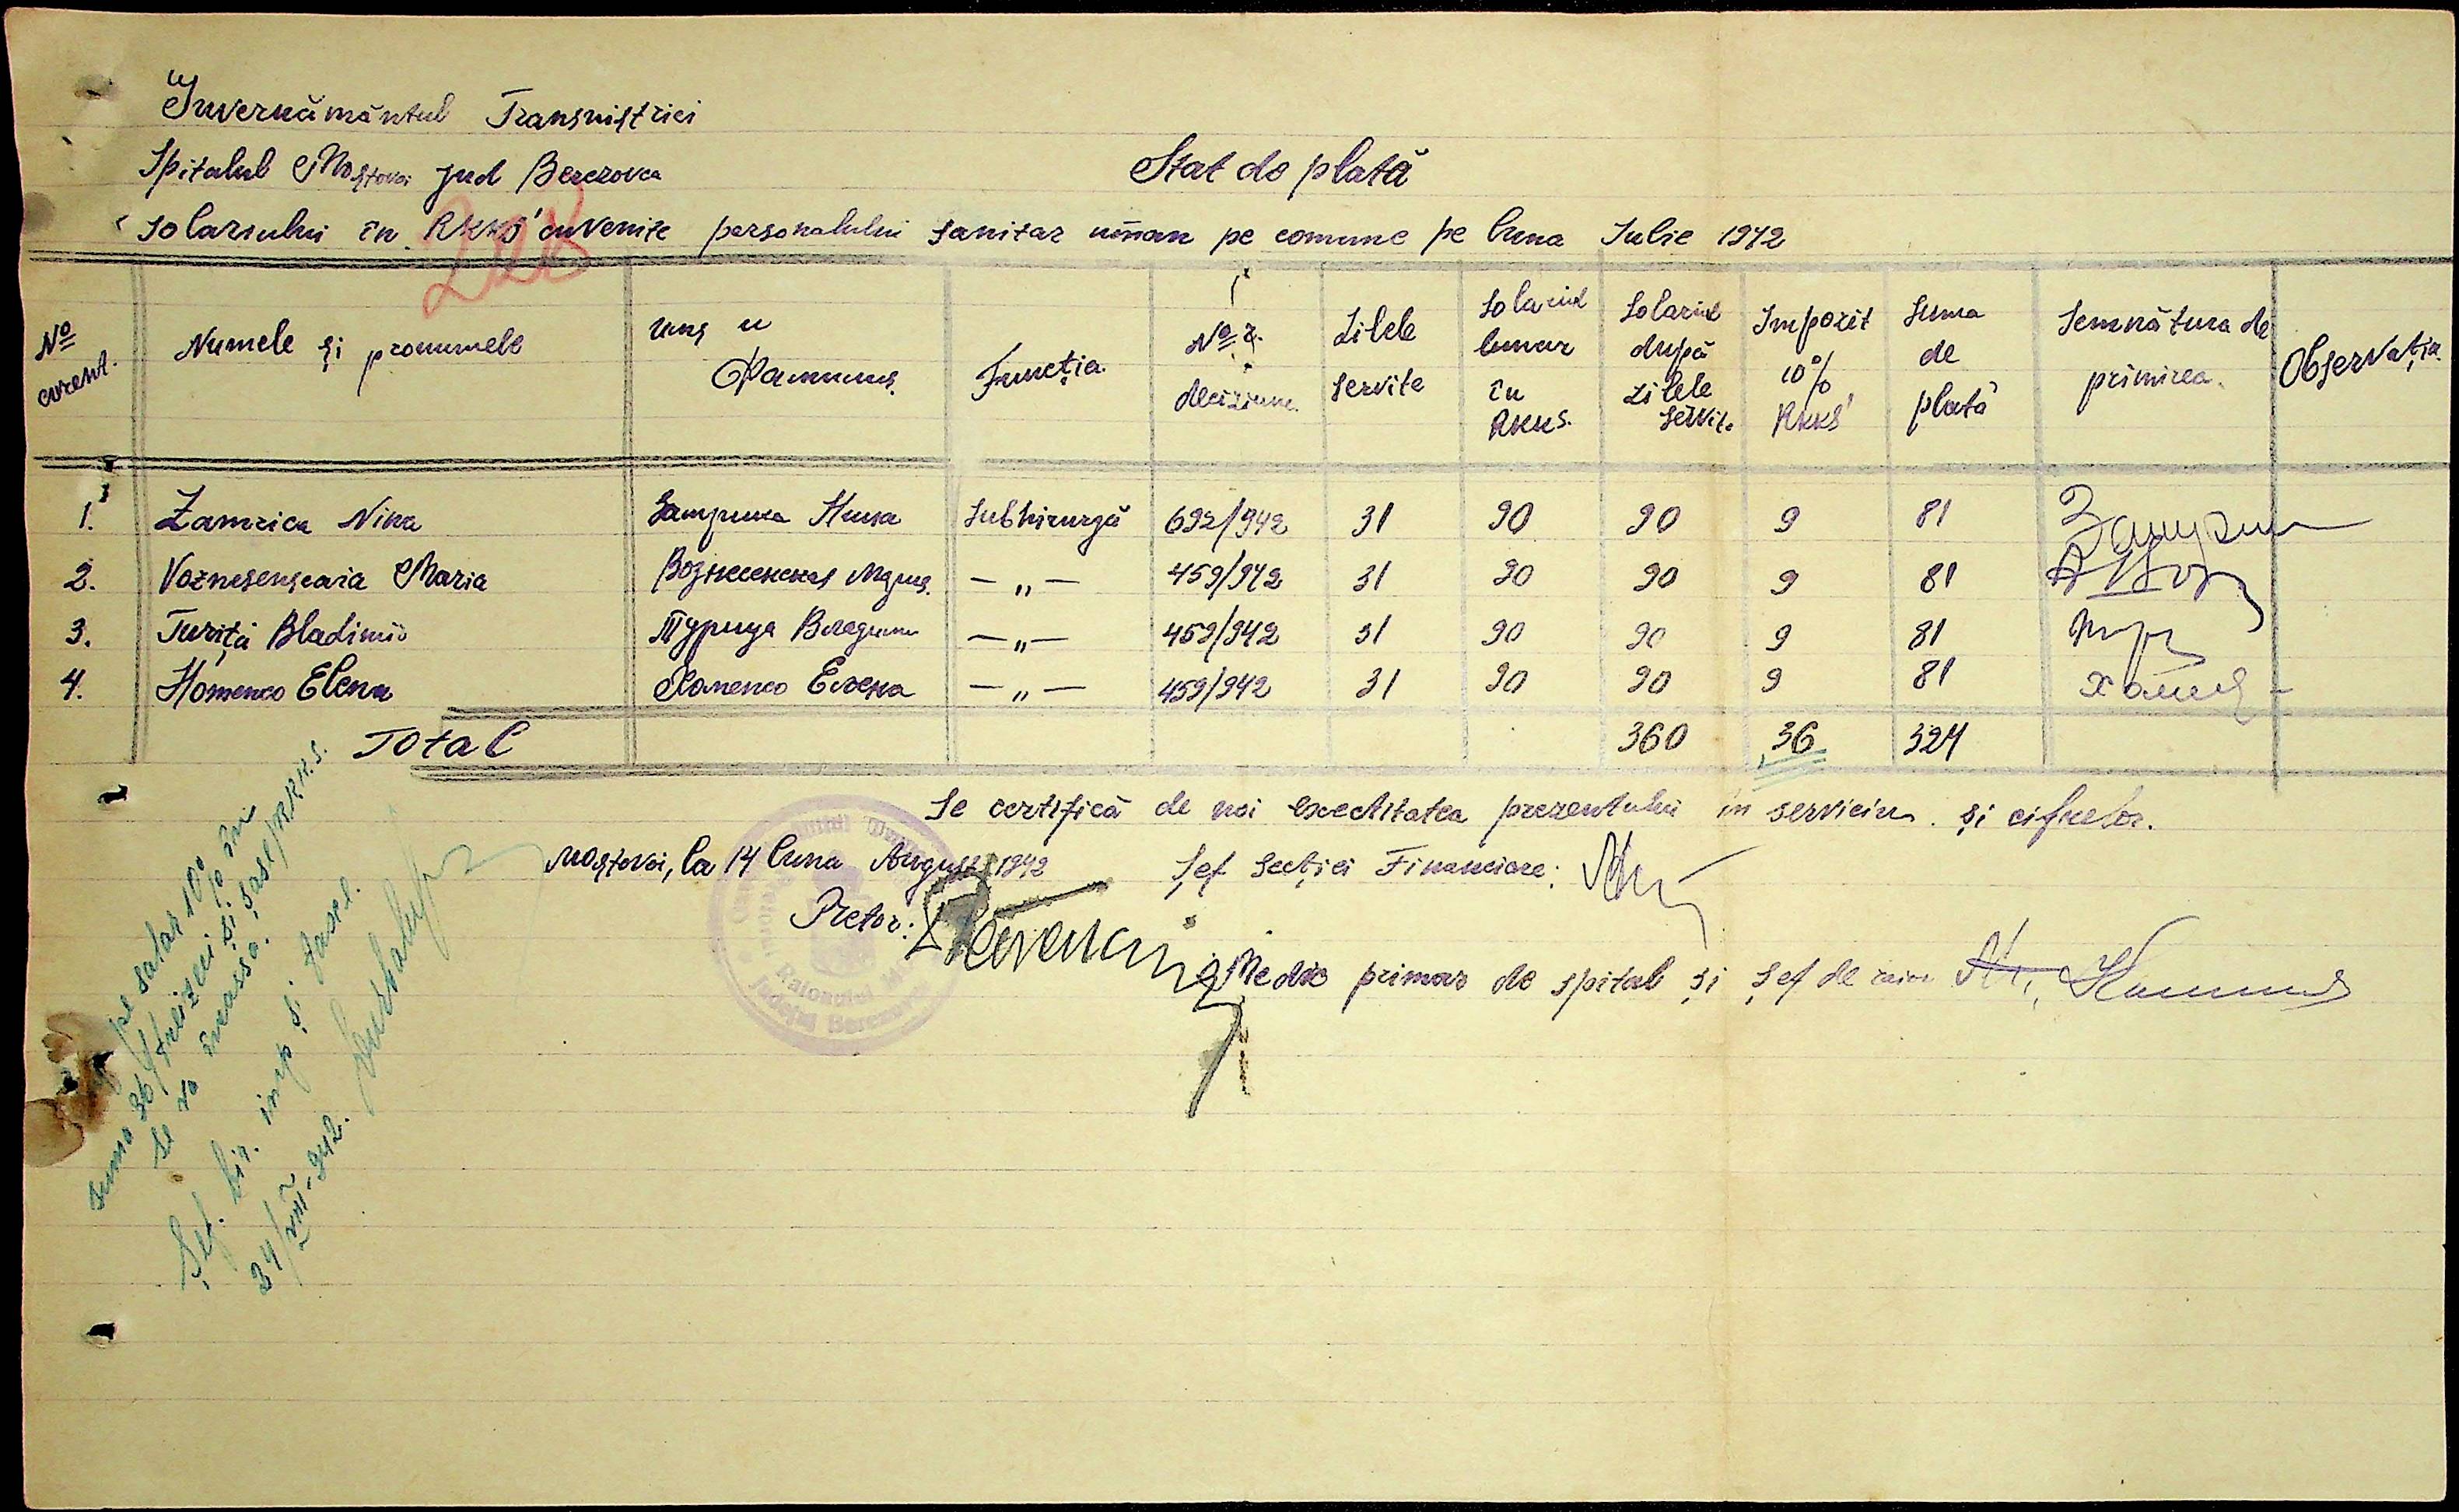 Guvernământul Transnistriei
Spitalul Mostovoi jud Berezovca
Stat de plată
solariului în RKKS cuvenite personalului sanitar uman pe comune pe luna Iulie 1942
228
No curent. Numele și pronumele Имя и Фамилия Funcția No decziune. Zilele servite Solariul lunar în RKKS. Solariul după zilele servite Impozit 10% RKKS Suma de plată Semnătura de primirea. Observația
1. Zamrica Nina Замрика Нина Subhirurgă 692/942 31 90 90 9 81
2. Voznesenscaia Maria Вознесенская Мария — „ — 459/942 31 90 90 9 81
3. Turița Bladimir Турица Владимир — „ — 459/942 31 90 90 9 81
4. Homenco Elena Хоменко Елена — „ — 459/942 31 90 90 9 81
Total 360 36 324
Se certifică de noi exectitatea prezentului în serviciu și cifrelor.
Mostovoi, la 14 luna August 1942 Șef Secției Financiare:
Pretor:
Medic primar de spital și șef de raion
Raionului
Județul Berezovca
pe salar 10%
suma 36/treizeci și șase/RKKS.
se va încasa.
Șef. bir. imp. și
24/VIII-942.